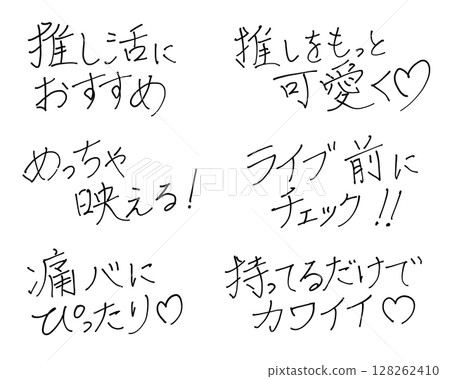 推し活に
おすすめ
推しをもっと
可愛く♡
めっちゃ
映える!
ライブ前に
チェック!!
痛バに
ぴったり♡
持ってるだけで
カワイイ♡
PIXTA
128262410